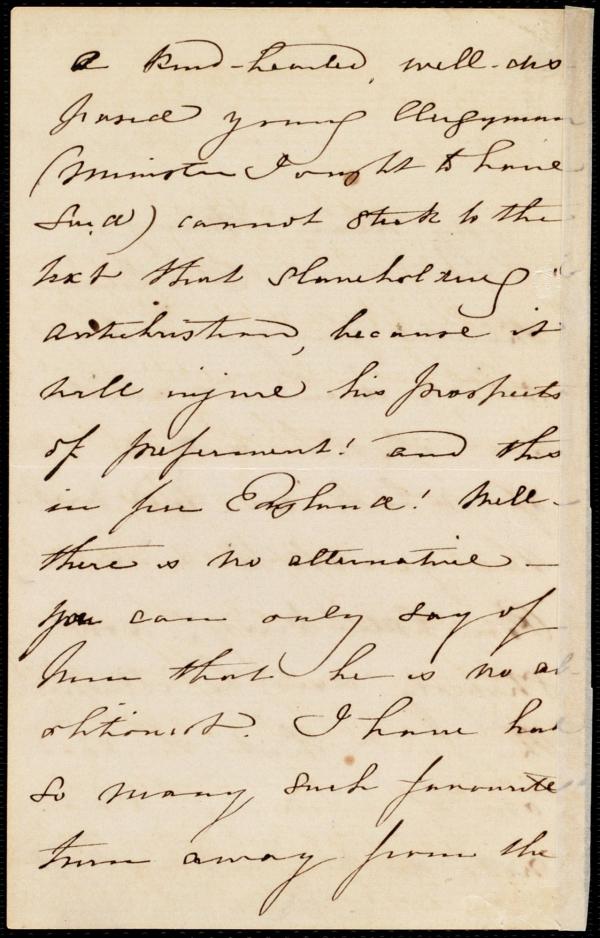 a kind-hearted, well-dis
posed young Clergyman
(Minister I ought to have
said) cannot stick to the
text that slaveholding is
antichristian, because it
will injure his prospects
of preferment! and this
in free England! Well-
there is no alternative -
you can only say of
him that he is no ab
olitionist. I have had
so many such favourite
turn away from the